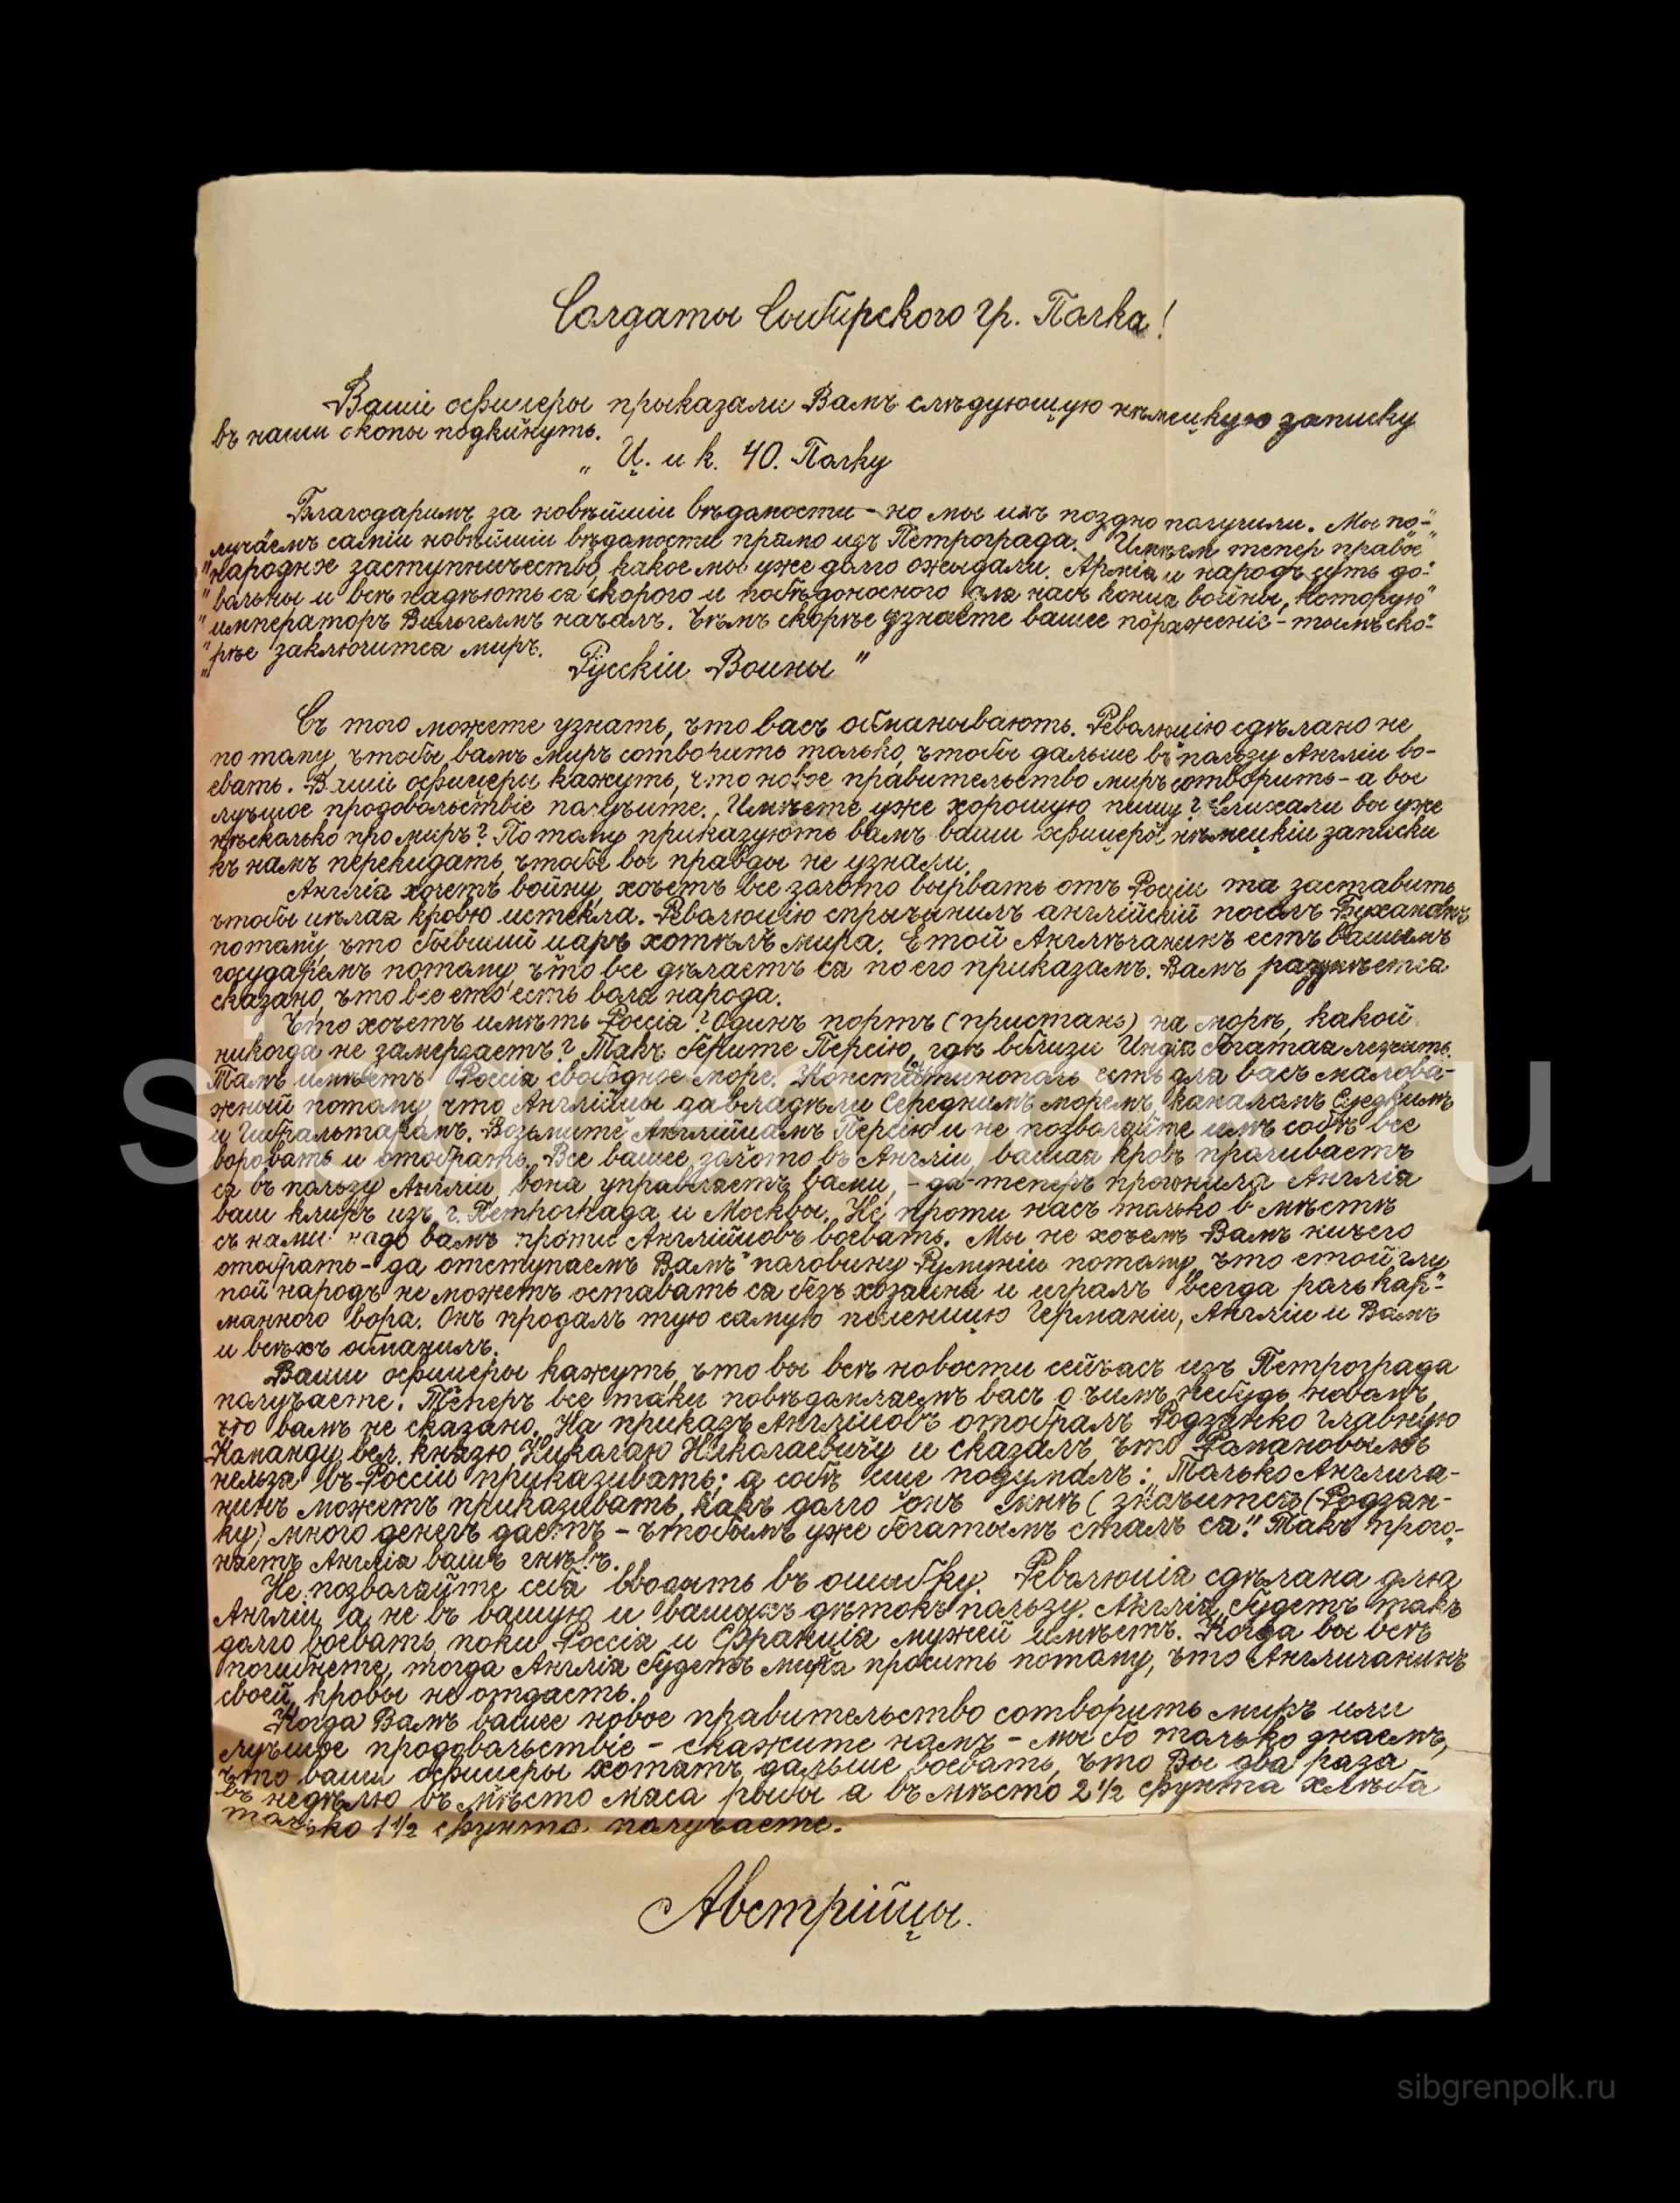 Солдаты Сибирскаго Гр. Полка!
Ваши офицеры приказали Вамъ слѣдующую нѣмецкую записку
въ наши окопы подкинуть.
„ Ц. и к. 40. Полку
Благодаримъ за новѣйшіи вѣдомости – но мы ихъ поздно получили. Мы по-"
лучаемъ саміи новѣйшіи вѣдомости прямо изъ Петрограда. Имѣем тепер правое"
"народнѣ заступничество, какое мы уже долго ожидали. Армія и народъ суть до-"
"вольны и всѣ надѣють ся скорого и побѣдоносного для насъ конца войны, которую"
"императоръ Вильгелмъ началъ. Чѣмъ скорѣе узнаете вашее пораженіе – тымъ ско-"
"рѣе заключится миръ.
" Русскіи Воины "
Съ того можете узнать, что васъ обманывають. Революцію сдѣлано не
по тому, чтобы вамъ миръ сотворить только, чтобы дальше въ пользу Англіи во-
евать. Ваши офицеры кажуть, что новое правительство миръ сотворить – а вы
лучшое продовольствіе получите. Имѣете уже хорошую пищу? Слихали вы уже
нѣсколько про миръ? По тому приказують вамъ ваши офицеры нѣмецкіи записки
къ намъ перекидать, чтобы вы правды не узнали.
Англія хочетъ войну, хочетъ все золото вырвать отъ Росіи та заставить
чтобы цѣлая кровю истекла. Революцію спрычинилъ англійскій посолъ Буханднъ
потому, что бывший царь хотѣлъ мира. Етой Англѣчанинъ естъ вашемъ
государемъ потому что все дѣлаетъ ся по его приказамъ. Вамъ разумѣется
сказано, что все ето есть воля народа.
Что хочетъ имѣть Россія? Одинъ портъ (пристань) на морѣ, какой
никогда не замерзаетъ? Такъ берите Персію, гдѣ вблизи Индія богатая лежить.
Тамъ имѣетъ Россія свободное море. Константинополь есть для васъ малова-
жный потому, что Англійцы завладѣли Середнимъ моремъ, каналомъ Суезкимъ
и Гибральтаромъ. Возьмите Англійцамъ Персію и не позволяйте имъ собѣ все
воровать и отобрать. Все вашее золото въ Англіи, вашая кровь проливаетъ
ся въ пользу Англіи, вона управляетъ вами, – да теперъ прогнила Англія
ваш клиръ изъ г. Петрограда и Москвы. Не проти насъ только в мѣстѣ
съ нами надо вамъ проти Англійцовъ воевать. Мы не хочемъ Вамъ ничего
отобрать – да отступаемъ Вамъ половину Румуніи потому, что етой глу
пой народъ не можетъ оставать ся безъ хозаина и игралъ всегда роль кар-"
манного вора. Онъ продалъ тую самую пшеницю Германіи, Англіи и Вамъ
и всѣхъ обманилъ.
Ваши офицеры кажуть, что вы всѣ новости сейчасъ изъ Петрограда
получаете. Теперъ все таки повѣдомляемъ васъ о чимъ небудь новомъ,
что вамъ не сказано. На приказъ Англіцовъ отобралъ Родзянко главную
Команду вел. князю Николаю Николаевичу и сказалъ, что Романовымъ
нельзя въ Россіи приказивать; а собѣ ище подумалъ: „Только Англича-
нинъ можетъ приказивать, какъ долго онъ мнѣ (значится (Родзян-
ку) много денегъ даетъ – чтобымъ уже богатымъ сталъ ся." Такъ прого-
няетъ Англія вашъ гнѣвъ.
Не позволяйте себя вводить въ ошибку. Революція сдѣлана для
Англіи а не въ вашую и вашихъ дѣтокъ пользу. Англія будетъ такъ
долго воевать, поки Россія и Франція мужей имѣетъ. Когда вы всѣ
погибнете, тогда Англія будетъ мира просить потому, что Англичанинъ
своей кровы не отдасть.
Когда Вамъ вашее новое правительство сотворить миръ или
лучшое продовольствіе – скажите намъ – мы бо только знаемъ,
что ваши офицеры хотятъ дальше воевать, что Вы два раза
въ недѣлю въ мѣсто мяса рыбы а въ мѣсто 2 1/2 фунта хлѣба
только 1 1/2 фунта получаете.
Австрійцы.
sibgrenpolk.ru